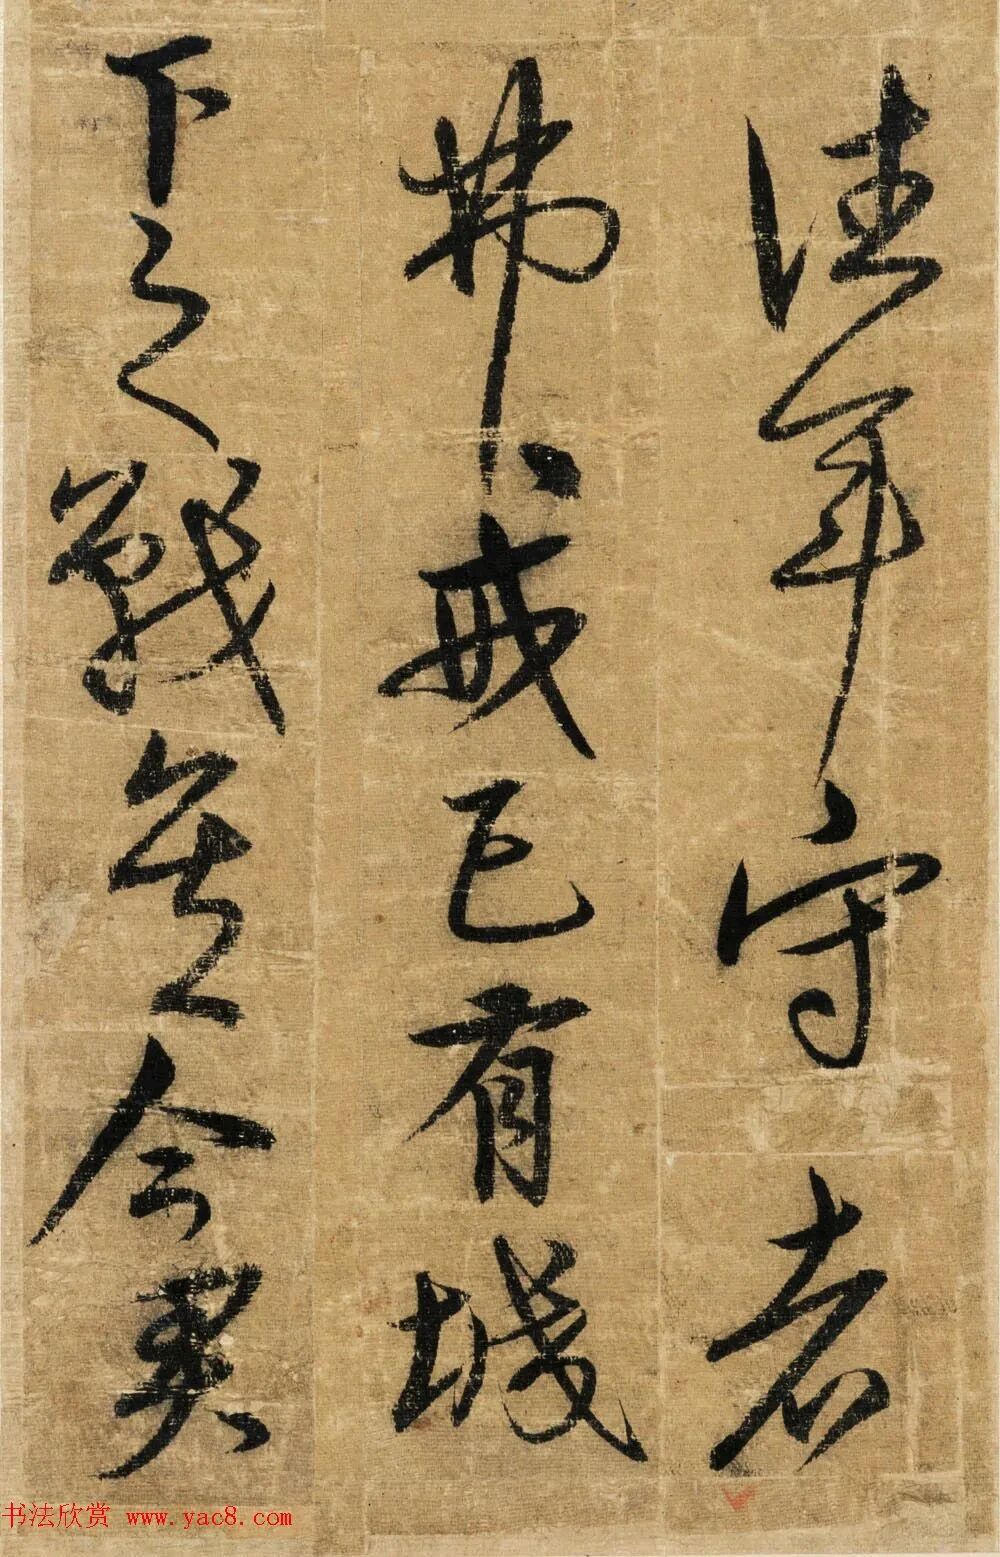 往年守者
弗戒已有城
下之戰矣今
书法欣赏 www.yac8.com